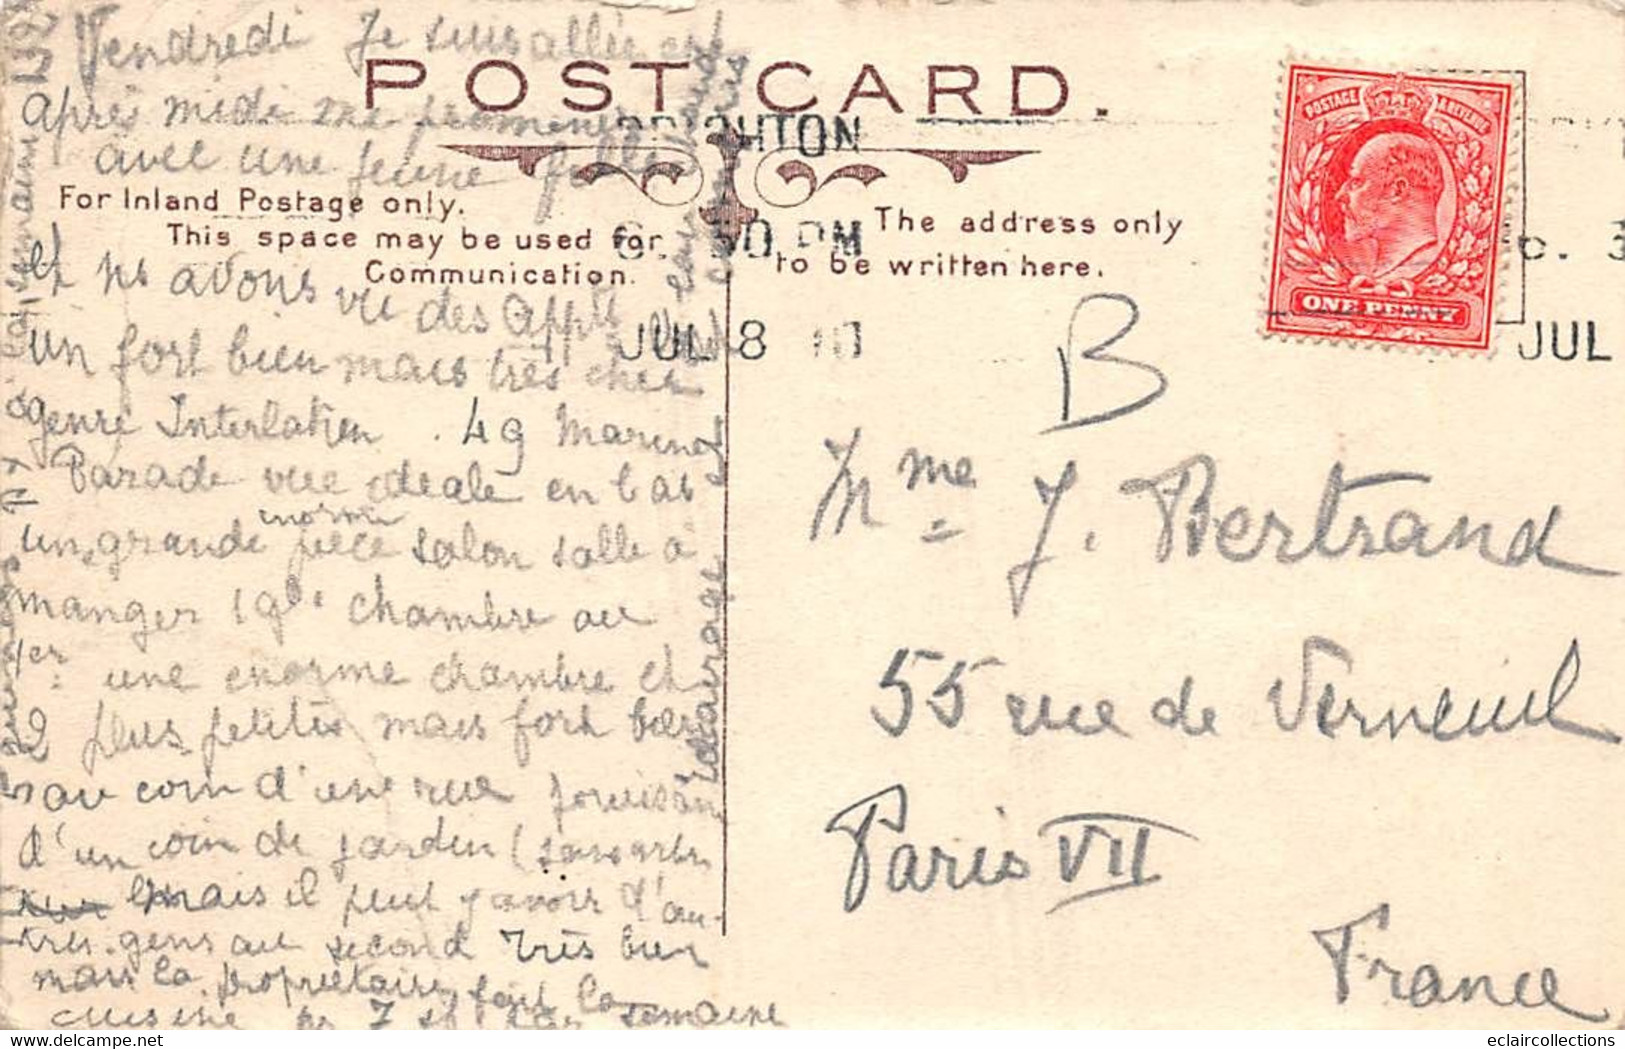 POST CARD.
For Inland Postage only.
This space may be used for
Communication.
The address only
to be written here.
BRIGHTON
6. 30 PM
JUL 8 10
POSTAGE REVENUE
ONE PENNY
JUL
Vendredi Je suis allée cet
après midi me promener
avec une jeune fille
et ns avons vu des appts
un fort bien mais très cher
genre Interlaken. 49 Marine
Parade vue idéale en bas
une grande pièce salon salle à
enorme
manger 1 gde chambre au
1er une enorme chambre et
2 plus petites mais fort belles
au coin d'une rue jouissant
d'un coin de jardin (sans arbres
mais il peut y avoir d'au-
tres gens au second Très bien
mais la propriétaire fait la
cuisine pr 7 par semaine
éclairage
B
Mme J. Bertrand
55 rue de Verneuil
Paris VII
France
eclaircollections